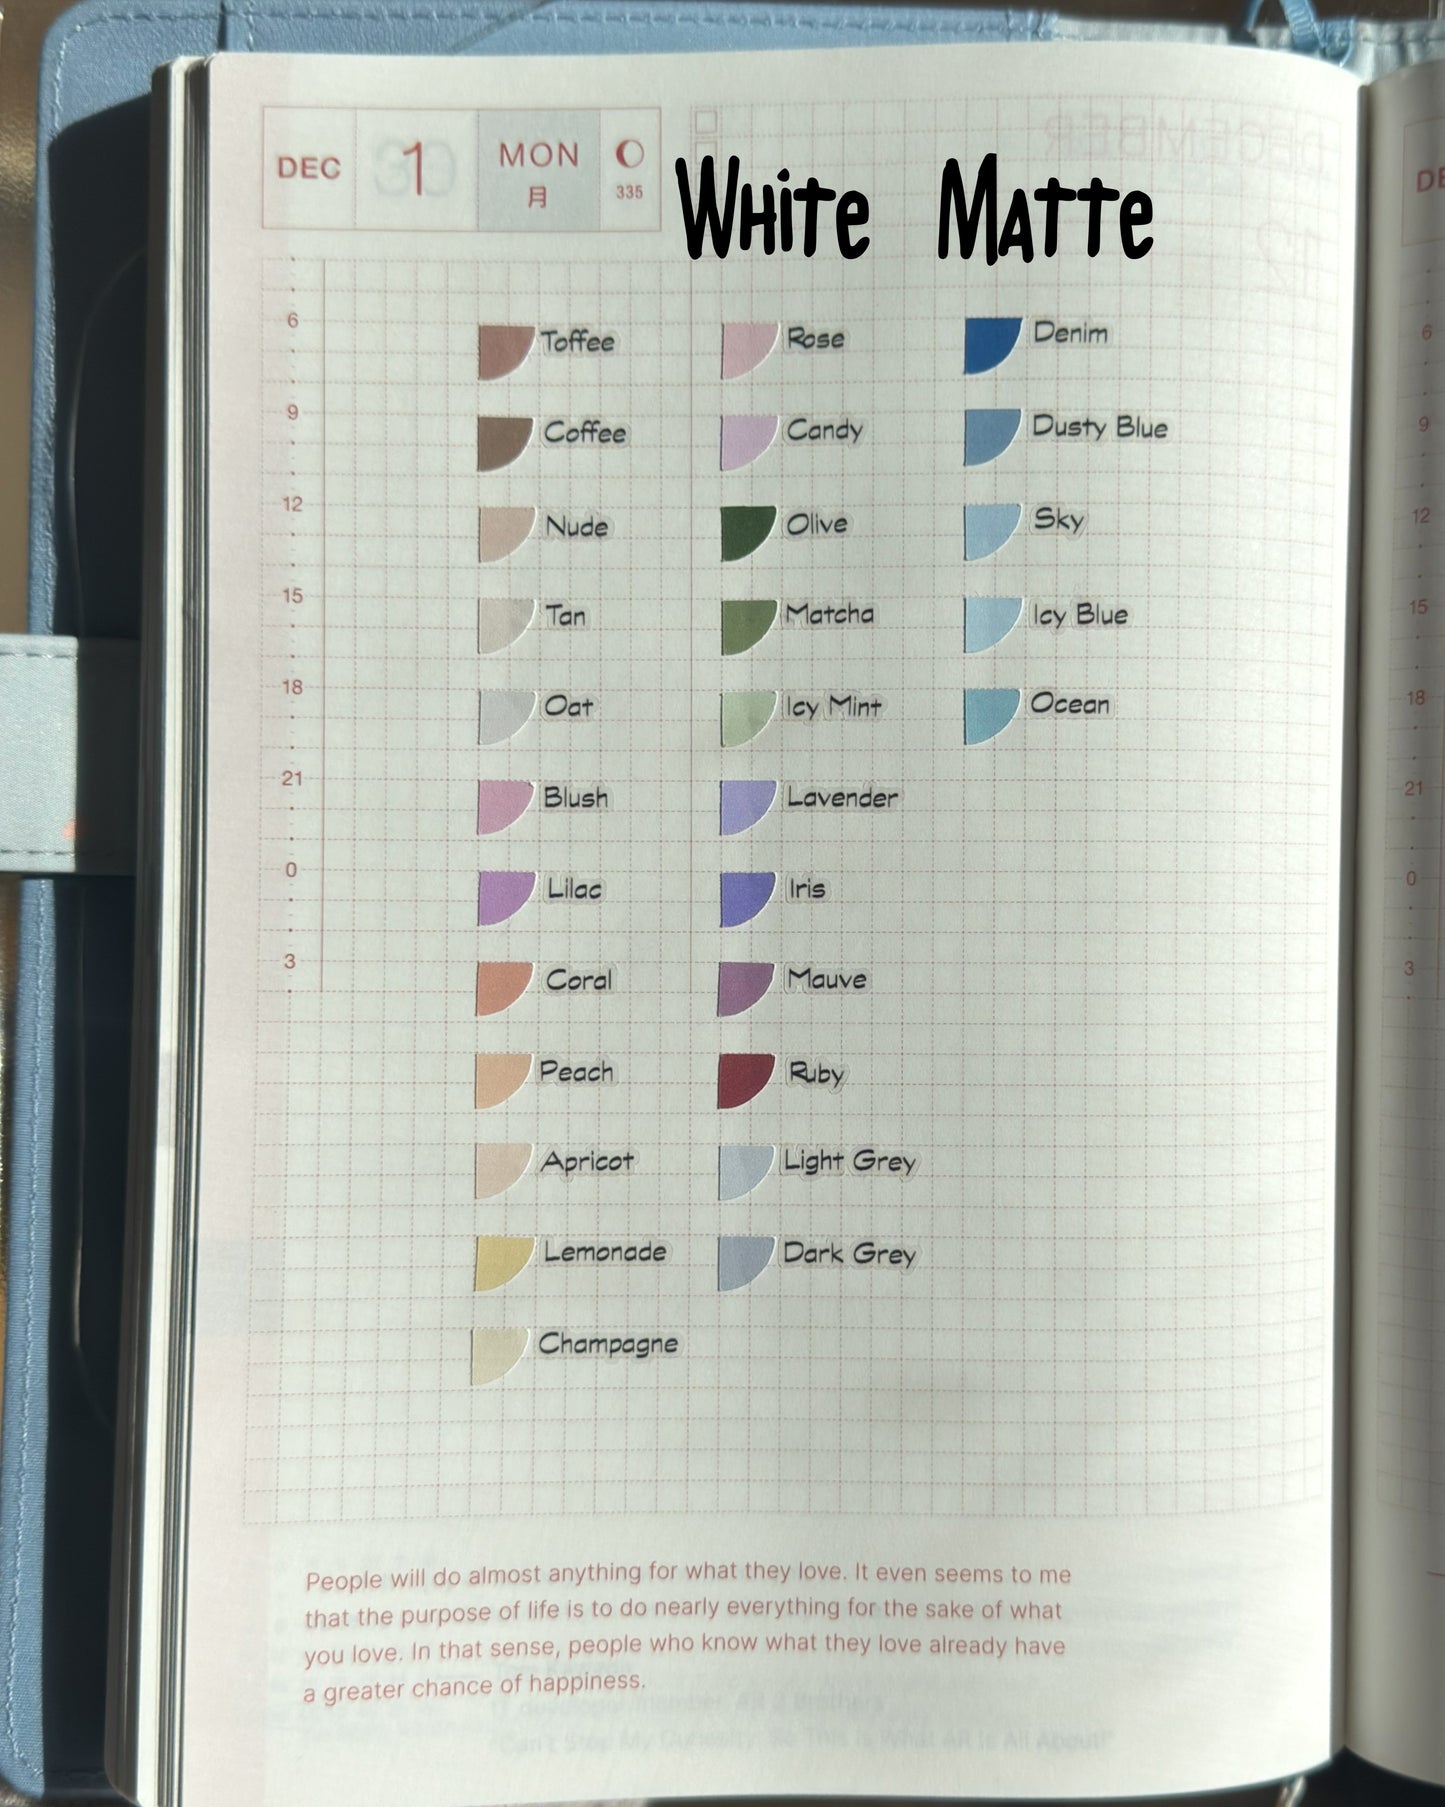 DEC 1 MON 月 335
White Matte
6
9
12
15
18
21
0
3
Toffee
Coffee
Nude
Tan
Oat
Blush
Lilac
Coral
Peach
Apricot
Lemonade
Champagne
Rose
Candy
Olive
Matcha
Icy Mint
Lavender
Iris
Mauve
Ruby
Light Grey
Dark Grey
Denim
Dusty Blue
Sky
Icy Blue
Ocean
People will do almost anything for what they love. It even seems to me
that the purpose of life is to do nearly everything for the sake of what
you love. In that sense, people who know what they love already have
a greater chance of happiness.
DE
6
9
12
15
18
21
0
3